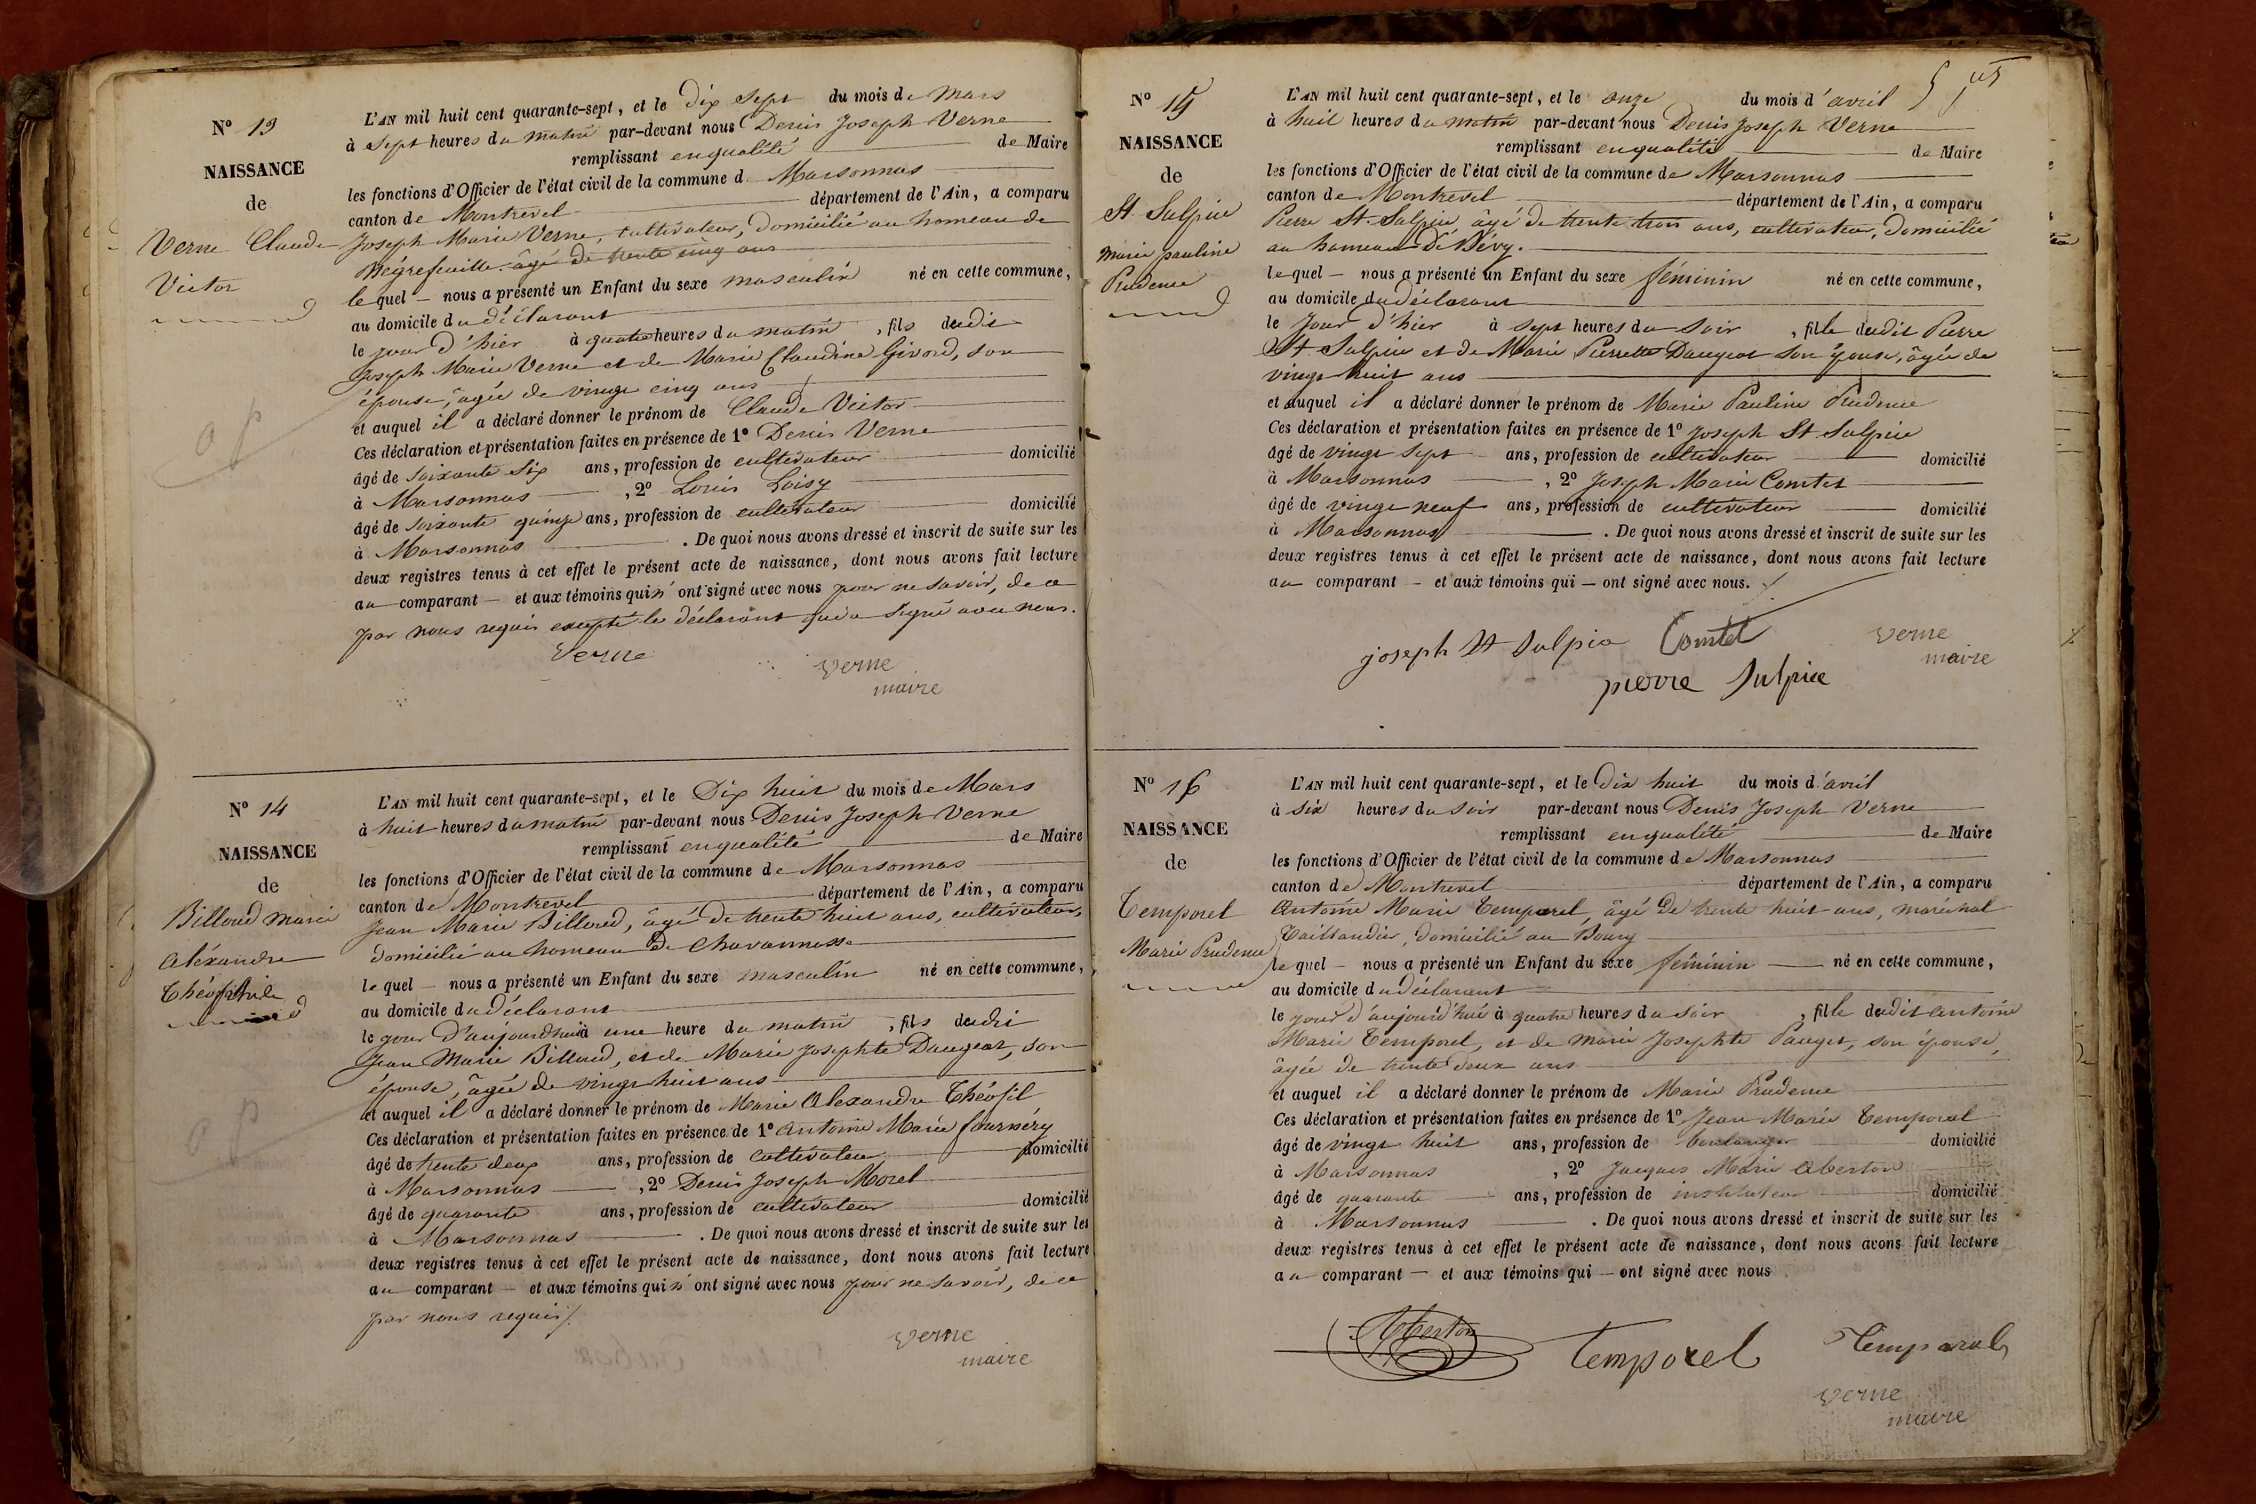 N° 13
NAISSANCE
de
Verne Claude
Victor
L'AN mil huit cent quarante-sept, et le Dix Sept du mois de Mars
à Sept heures du matin par-devant nous Denis Joseph Verne
remplissant en qualité de Maire
les fonctions d'Officier de l'état civil de la commune d Marsonnas
canton de Montrevel département de l'Ain, a comparu
Joseph Marie Verne, cultivateur, domicilié au hameau de
Négrefeuille âgé de trente cinq ans
lequel — nous a présenté un Enfant du sexe masculin né en cette commune,
au domicile du déclarant
le jour d'hier à quatre heures du matin, fils dudit
Joseph Marie Verne et de Marie Claudine Givord, son
épouse, âgée de vingt cinq ans
et auquel il a déclaré donner le prénom de Claude Victor
Ces déclaration et présentation faites en présence de 1° Denis Verne
âgé de soixante six ans, profession de cultivateur domicilié
à Marsonnas, 2° Louis Loisy
âgé de soixante quinze ans, profession de cultivateur domicilié
à Marsonnas. De quoi nous avons dressé et inscrit de suite sur les
deux registres tenus à cet effet le présent acte de naissance, dont nous avons fait lecture
au comparant — et aux témoins qui n'ont signé avec nous pour ne savoir, de ce
par nous requis excepté le déclarant qui a signé avec nous.
Verne
Verne
maire
N° 14
NAISSANCE
de
Billoud marie
alexandre
Théophile
L'AN mil huit cent quarante-sept, et le Dix huit du mois de Mars
à huit heures du matin par-devant nous Denis Joseph Verne
remplissant en qualité de Maire
les fonctions d'Officier de l'état civil de la commune de Marsonnas
canton de Montrevel département de l'Ain, a comparu
Jean Marie Billoud, âgé de trente huit ans, cultivateur,
domicilié au hameau de Chavannosse
lequel — nous a présenté un Enfant du sexe masculin né en cette commune,
au domicile du déclarant
le jour d'aujourdhui à une heure du matin, fils dudit
Jean Marie Billoud, et de Marie Josephte Daugeat, son
épouse, âgée de vingt huit ans
et auquel il a déclaré donner le prénom de Marie Alexandre Théofil
Ces déclaration et présentation faites en présence de 1° Antoine Marie
âgé de trente deux ans, profession de cultivateur domicilié
à Marsonnas, 2° Denis Joseph Morel
âgé de quarante ans, profession de cultivateur domicilié
à Marsonnas. De quoi nous avons dressé et inscrit de suite sur les
deux registres tenus à cet effet le présent acte de naissance, dont nous avons fait lecture
au comparant — et aux témoins qui n'ont signé avec nous pour ne savoir, de ce
par nous requis
Verne
maire
N° 15
NAISSANCE
de
St. Sulpice
marie pauline
Prudence
L'AN mil huit cent quarante-sept, et le onze du mois d'avril
à huit heures du matin par-devant nous Denis Joseph Verne
remplissant en qualité de Maire
les fonctions d'Officier de l'état civil de la commune de Marsonnas
canton de Montrevel département de l'Ain, a comparu
Pierre St. Sulpice âgé de trente trois ans, cultivateur, domicilié
au hameau de Bévy.
lequel — nous a présenté un Enfant du sexe féminin né en cette commune,
au domicile du déclarant
le Jour d'hier à sept heures du soir, fille dudit Pierre
St. Sulpice et de Marie Pierrette Daugeat son épouse, âgée de
vingt huit ans
et auquel il a déclaré donner le prénom de Marie Pauline Prudence
Ces déclaration et présentation faites en présence de 1° Joseph St. Sulpice
âgé de vingt sept ans, profession de cultivateur domicilié
à Marsonnas, 2° Joseph Marie Comtet
âgé de vingt neuf ans, profession de cultivateur domicilié
à Marsonnas. De quoi nous avons dressé et inscrit de suite sur les
deux registres tenus à cet effet le présent acte de naissance, dont nous avons fait lecture
au comparant — et aux témoins qui — ont signé avec nous.
joseph St Sulpice Comtet Verne
maire
pierre Sulpice
N° 16
NAISSANCE
de
Temporel
Marie Prudence
L'AN mil huit cent quarante-sept, et le Dix huit du mois d'avril
à six heures du soir par-devant nous Denis Joseph Verne
remplissant en qualité de Maire
les fonctions d'Officier de l'état civil de la commune de Marsonnas
canton de Montrevel département de l'Ain, a comparu
Antoine Marie Temporel, âgé de trente huit ans, maréchal
Taillandier, domicilié au Bourg
lequel — nous a présenté un Enfant du sexe féminin né en cette commune,
au domicile du déclarant
le jour d'aujourd'hui à quatre heures du soir, fille dudit antoine
Marie Temporel, et de marie Josephte Pauget, son épouse,
âgée de trente deux ans
et auquel il a déclaré donner le prénom de Marie Prudence
Ces déclaration et présentation faites en présence de 1° Jean Marie Temporal
âgé de vingt huit ans, profession de boulanger domicilié
à Marsonnas, 2° Jacques Marie Aberton
âgé de quarante ans, profession de instituteur domicilié
à Marsonnas. De quoi nous avons dressé et inscrit de suite sur les
deux registres tenus à cet effet le présent acte de naissance, dont nous avons fait lecture
au comparant — et aux témoins qui — ont signé avec nous
Aberton Temporel Temporal
Verne
maire